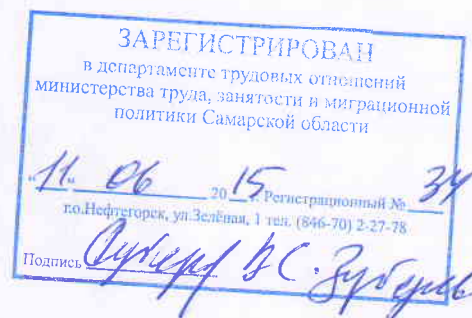 ЗАРЕГИСТРИРОВАН
в департаменте трудовых отношений
министерства труда, занятости и миграционной
политики Самарской области
"11" 06 2015 г. Регистрационный № 34
г.о.Нефтегорск, ул.Зелёная, 1 тел. (846-70) 2-27-78
Подпись В.С.